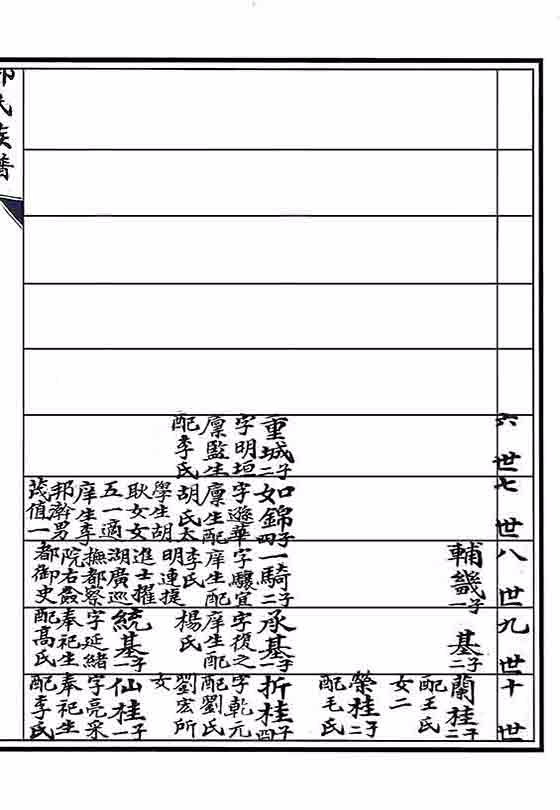 六世
重城二子
字明垣
廩監生
配李氏
七世
如錦四子
字遜華
廩生配
胡氏太
學生胡
耿女女
五一適
庠生李
邦瀚男
茂值一
八世
輔畿一子
一騎二子
字驤宜
庠生配
李氏
明連捷
進士擢
湖廣巡
撫都察
院右僉
都御史
九世
基二子
承基一子
字復之
庠生配
楊氏
統基一子
字延緒
奉祀生
配高氏
十世
蘭桂二子
配王氏
女二
榮桂二子
配毛氏
折桂四子
字乾元
配劉氏
劉宏所
女
仙桂一子
字亮采
奉祀生
配李氏
氏族譜